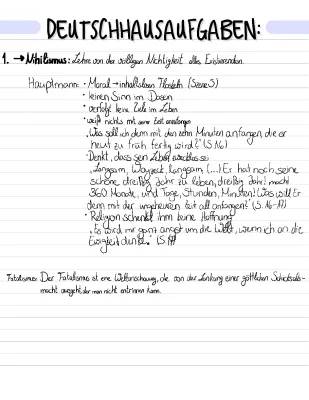 DEUTSCHHAUSAUFGABEN:
1. → Nihilismus: Lehre von der völligen Nichtigkeit alles Existierenden.
Hauptmann: • Moral → inhaltslosen Floskeln (Szene 5)
• keinen Sinn im Dasein
• verfolgt keine Ziele im Leben
• weiß nichts mit seiner Zeit anzufangen
„Was soll ich denn mit den zehn Minuten anfangen, die er
heut zu früh fertig wird?" (S.16)
• Denkt, dass sein Leben wertlos sei
„Langsam, Woyzeck, langsam, (...) Er hat noch seine
schöne dreißig Jahr zu leben, dreißig Jahr! macht
360 Monate, und Tage, Stunden, Minuten! Was will Er
denn mit der ungeheuren Zeit all anfangen?" (S. 16-17)
• Religion schenkt ihm keine Hoffnung
„Es wird mir ganz angst um die Welt, wenn ich an die
Ewigkeit denke." (S. 17)
Fatalismus: Der Fatalismus ist eine Weltanschauung, die von der Lenkung einer göttlichen Schicksals-
macht ausgeht, der man nicht entrinnen kann.